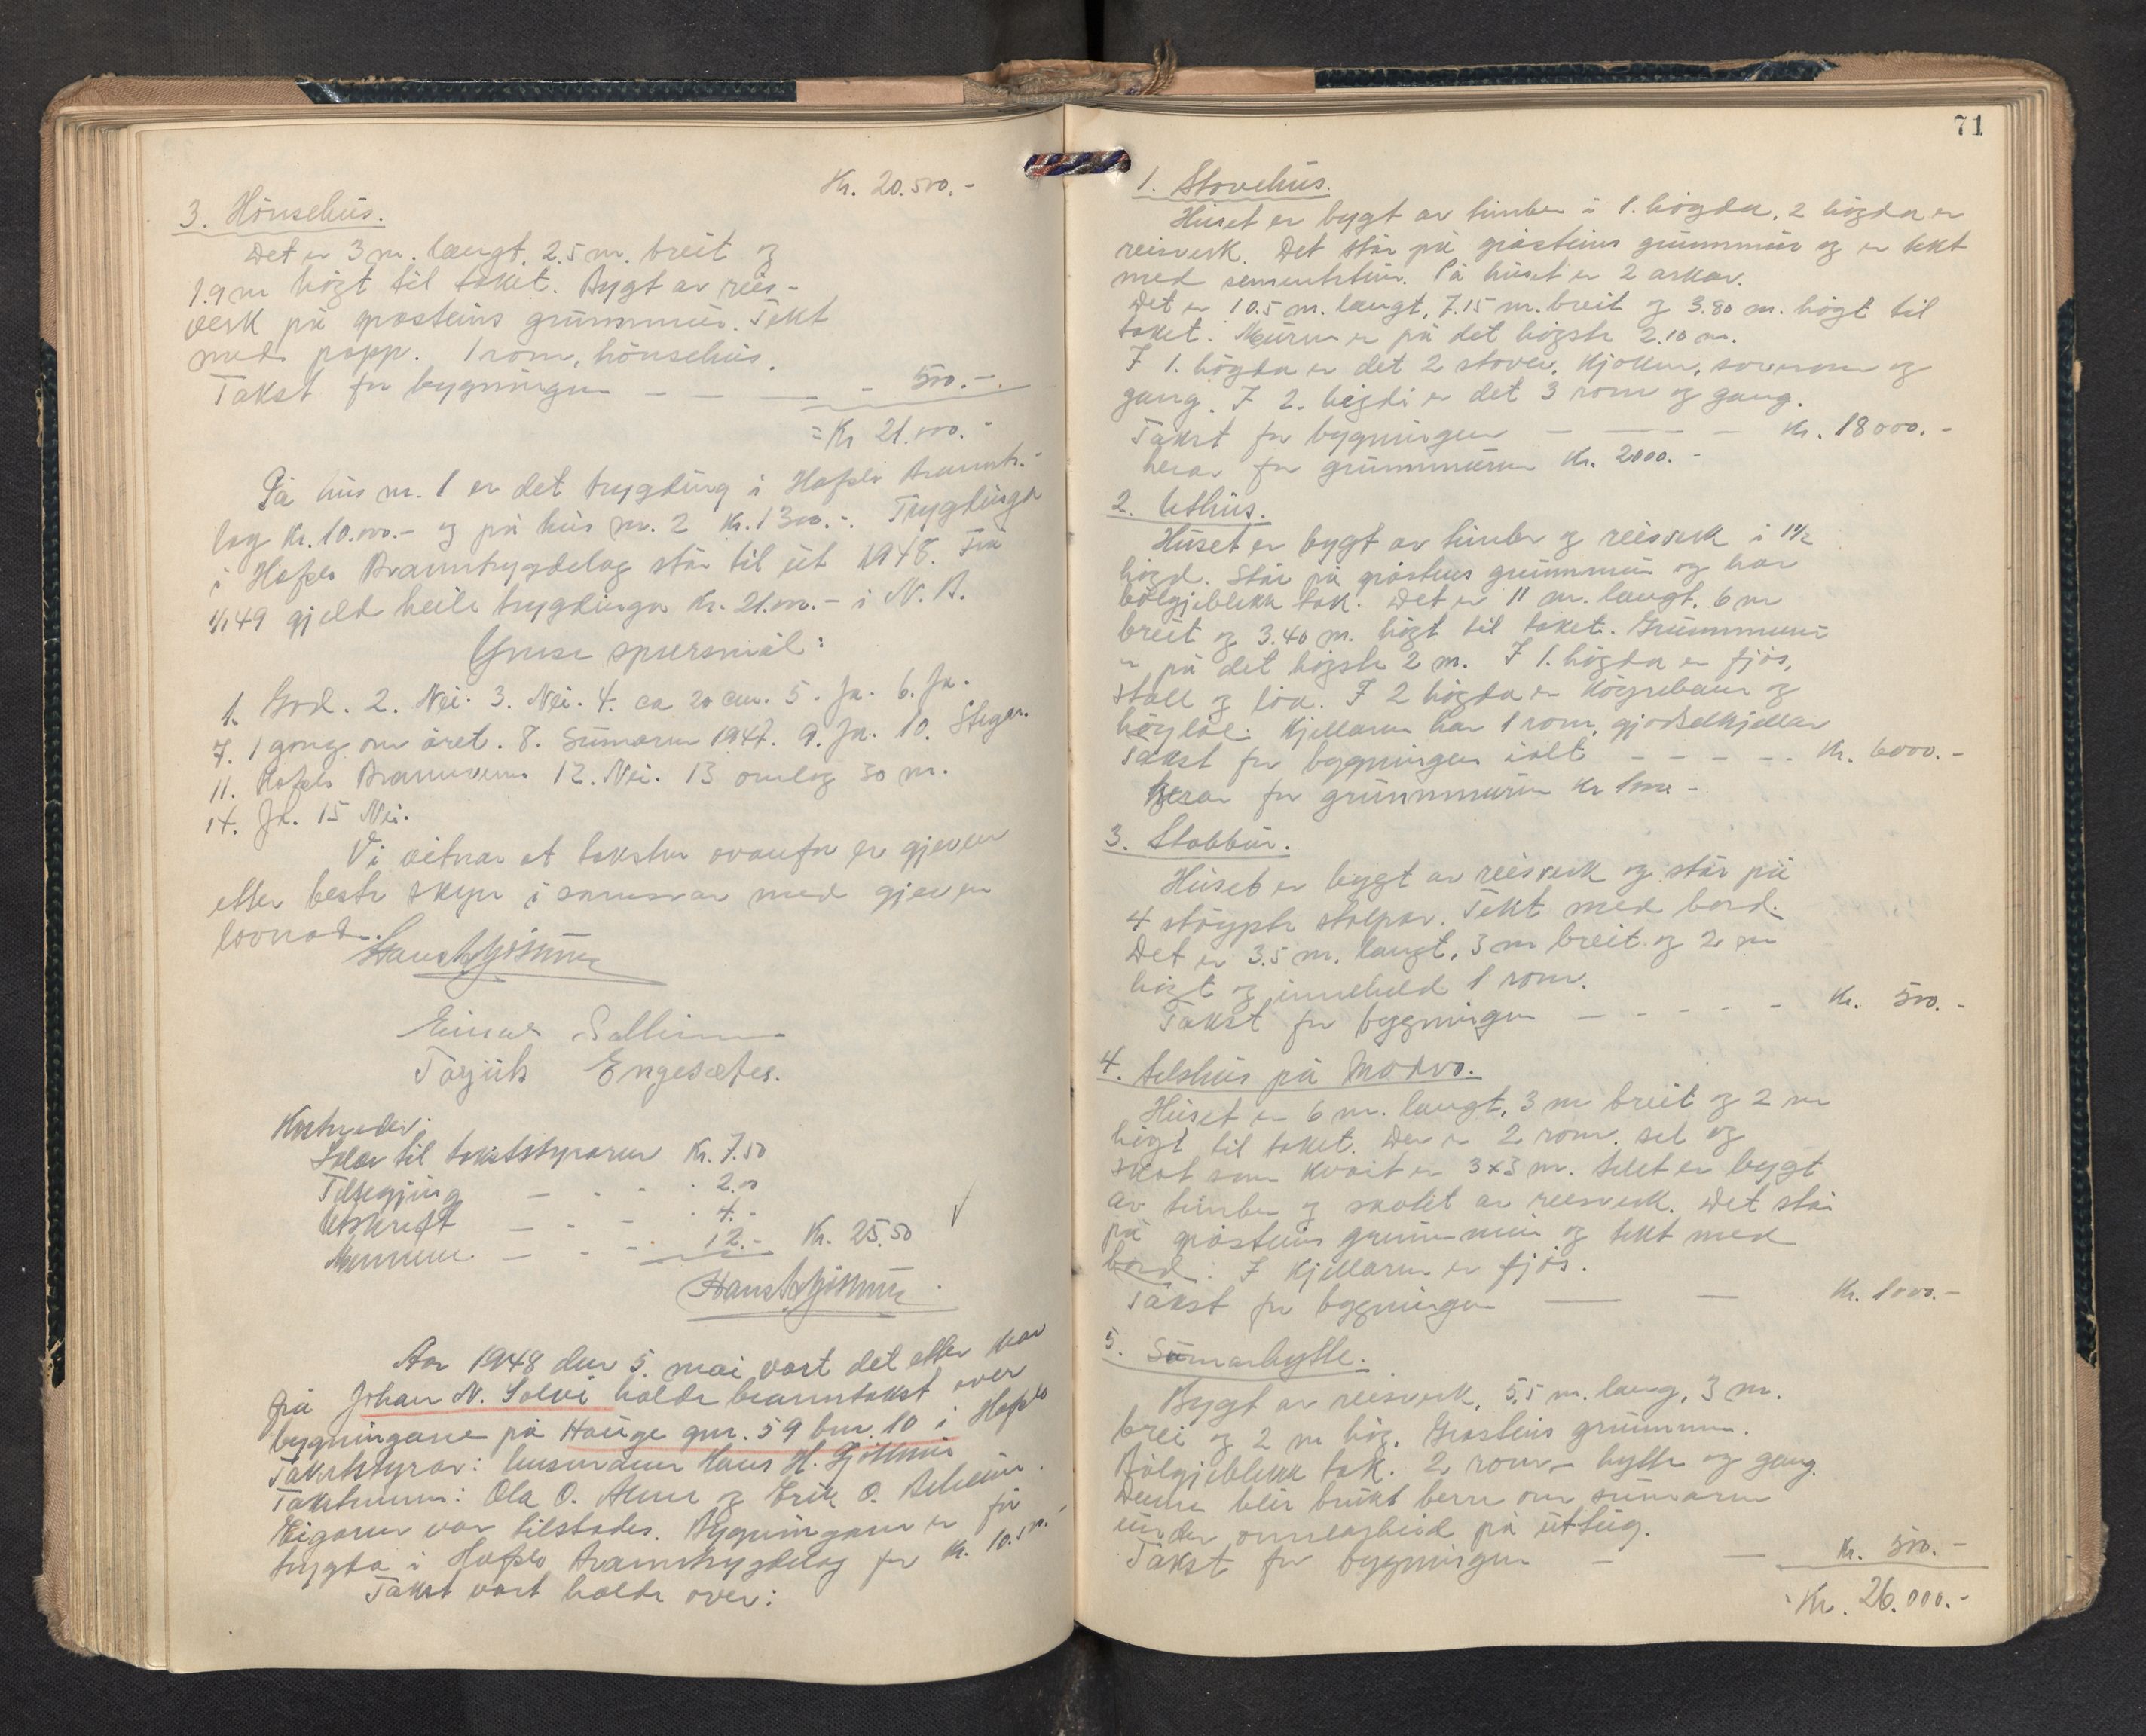 Kr. 20.500.-
3. Hönsehus.
Det er 3 m. langt, 2.5 m. breit og
1.9 m högt til taket. Bygt av reis-
verk på gråsteins grunnmur. Tekt
med papp. 1 rom, hönsehus.
Takst for bygningen - - - - 500.-
= Kr 21.000.-
På hus nr. 1 er det trygding i Hafslo Branntr.-
lag Kr. 10.000.- og på hus nr. 2 Kr. 1300.-. Trygdinga
i Hafslo Branntrygdelag står til ut 1948. Frå
1/1 49 gjeld heile trygdinga Kr. 21.000.- i N. B.
Ymse spursmål:
1. God. 2. Nei. 3. Nei. 4. ca 20 cm. 5. Ja. 6. Ja.
7. 1 gong om året. 8. Sumaren 1947. 9. Ja. 10. Stegar.
11. Hafslo Brannvern 12. Nei. 13 omlag 30 m.
14. Ja. 15 Nei.
Vi vitnar at taksten ovanfor er gjeven
etter beste skyn i samsvar med gjeven
lovnad.
Hans H Gjösmun
Einar Sollien
Torjuls Engesæter.
Kostnader:
Salær til takststyraren Kr. 7.50
Tilsegjing - - - 2.00
Utskrift - - - 4.-
Mennene - - - 12.- Kr. 25.50
Hans H Gjösmun
Aar 1948 den 5. mai vart det etter krav
frå Johan N. Solvi halde branntakst over
bygningane på Hauge gnr. 59 bnr. 10 i Hafslo
Takststyrar: lensmann Hans H. Gjösmun
Takstmenn: Ola O. Alme og Erik O. Beheim.
Eigaren var tilstades. Bygningane er för
trygda i Hafslo Branntrygdelag for Kr. 10.500.-
Takst vart halde over:
71
1. Stovehus.
Huset er bygt av timber i 1. högda, 2 högda er
reisverk. Det står på gråsteins grunnmur og er tekt
med sementstein. På huset er 2 arkar.
Det er 10.5 m. langt, 7.15 m. breit og 3.80 m. högt til
taket. Muren er på det högste 2.10 m.
I 1. högda er det 2 stover, kjöken, soverom og
gang. I 2. högdi er det 3 rom og gang.
Takst for bygningen - - - - Kr. 18000.-
herav for grunnmuren Kr. 2000.-
2. Uthus.
Huset er bygt av timber og reisverk i 1 1/2
högd. Står på gråsteins grunnmur og har
bölgjeblekk tak. Det er 11 m. langt, 6 m
breit og 3.40 m. högt til taket. Grunnmuren
er på det högste 2 m. I 1. högda er fjös,
stall og löa. I 2 högda er högrebaur og
höyloe. Kjellaren har 1 rom, gjödselkjellar
Takst for bygningen ialt - - - - - Kr. 6000.-
Herav for grunnmuren Kr 1000.-
3. Stabbur.
Huset er bygt av reisverk og står på
4 stöypte stolpar. Tekt med bord.
Det er 3.5 m. langt, 3 m breit og 2 m
högt og inneheld 1 rom.
Takst for bygningen - - - - - Kr. 500.-
4. Selshus på Modvo.
Huset er 6 m. langt, 3 m breit og 2 m
högt til taket. Der er 2 rom, sel og
skot som kvart er 3x3 m. Selet er bygt
av timber og skotet av reisverk. Det står
på gråsteins grunnmur og tekt med
bord. I kjellaren er fjös.
Takst for bygningen - - Kr. 1000.-
5. Sumarhytte.
Bygt av reisverk, 5,5 m. lang, 3 m.
brei og 2 m hög. Gråsteins grunnmur.
Bölgjeblekk tak. 2 rom - hytte og gang.
Denne blir brukt berre om sumaren
under onnearbeid på utslåg.
Takst for bygningen - - Kr. 500.-
Kr. 26.000.-